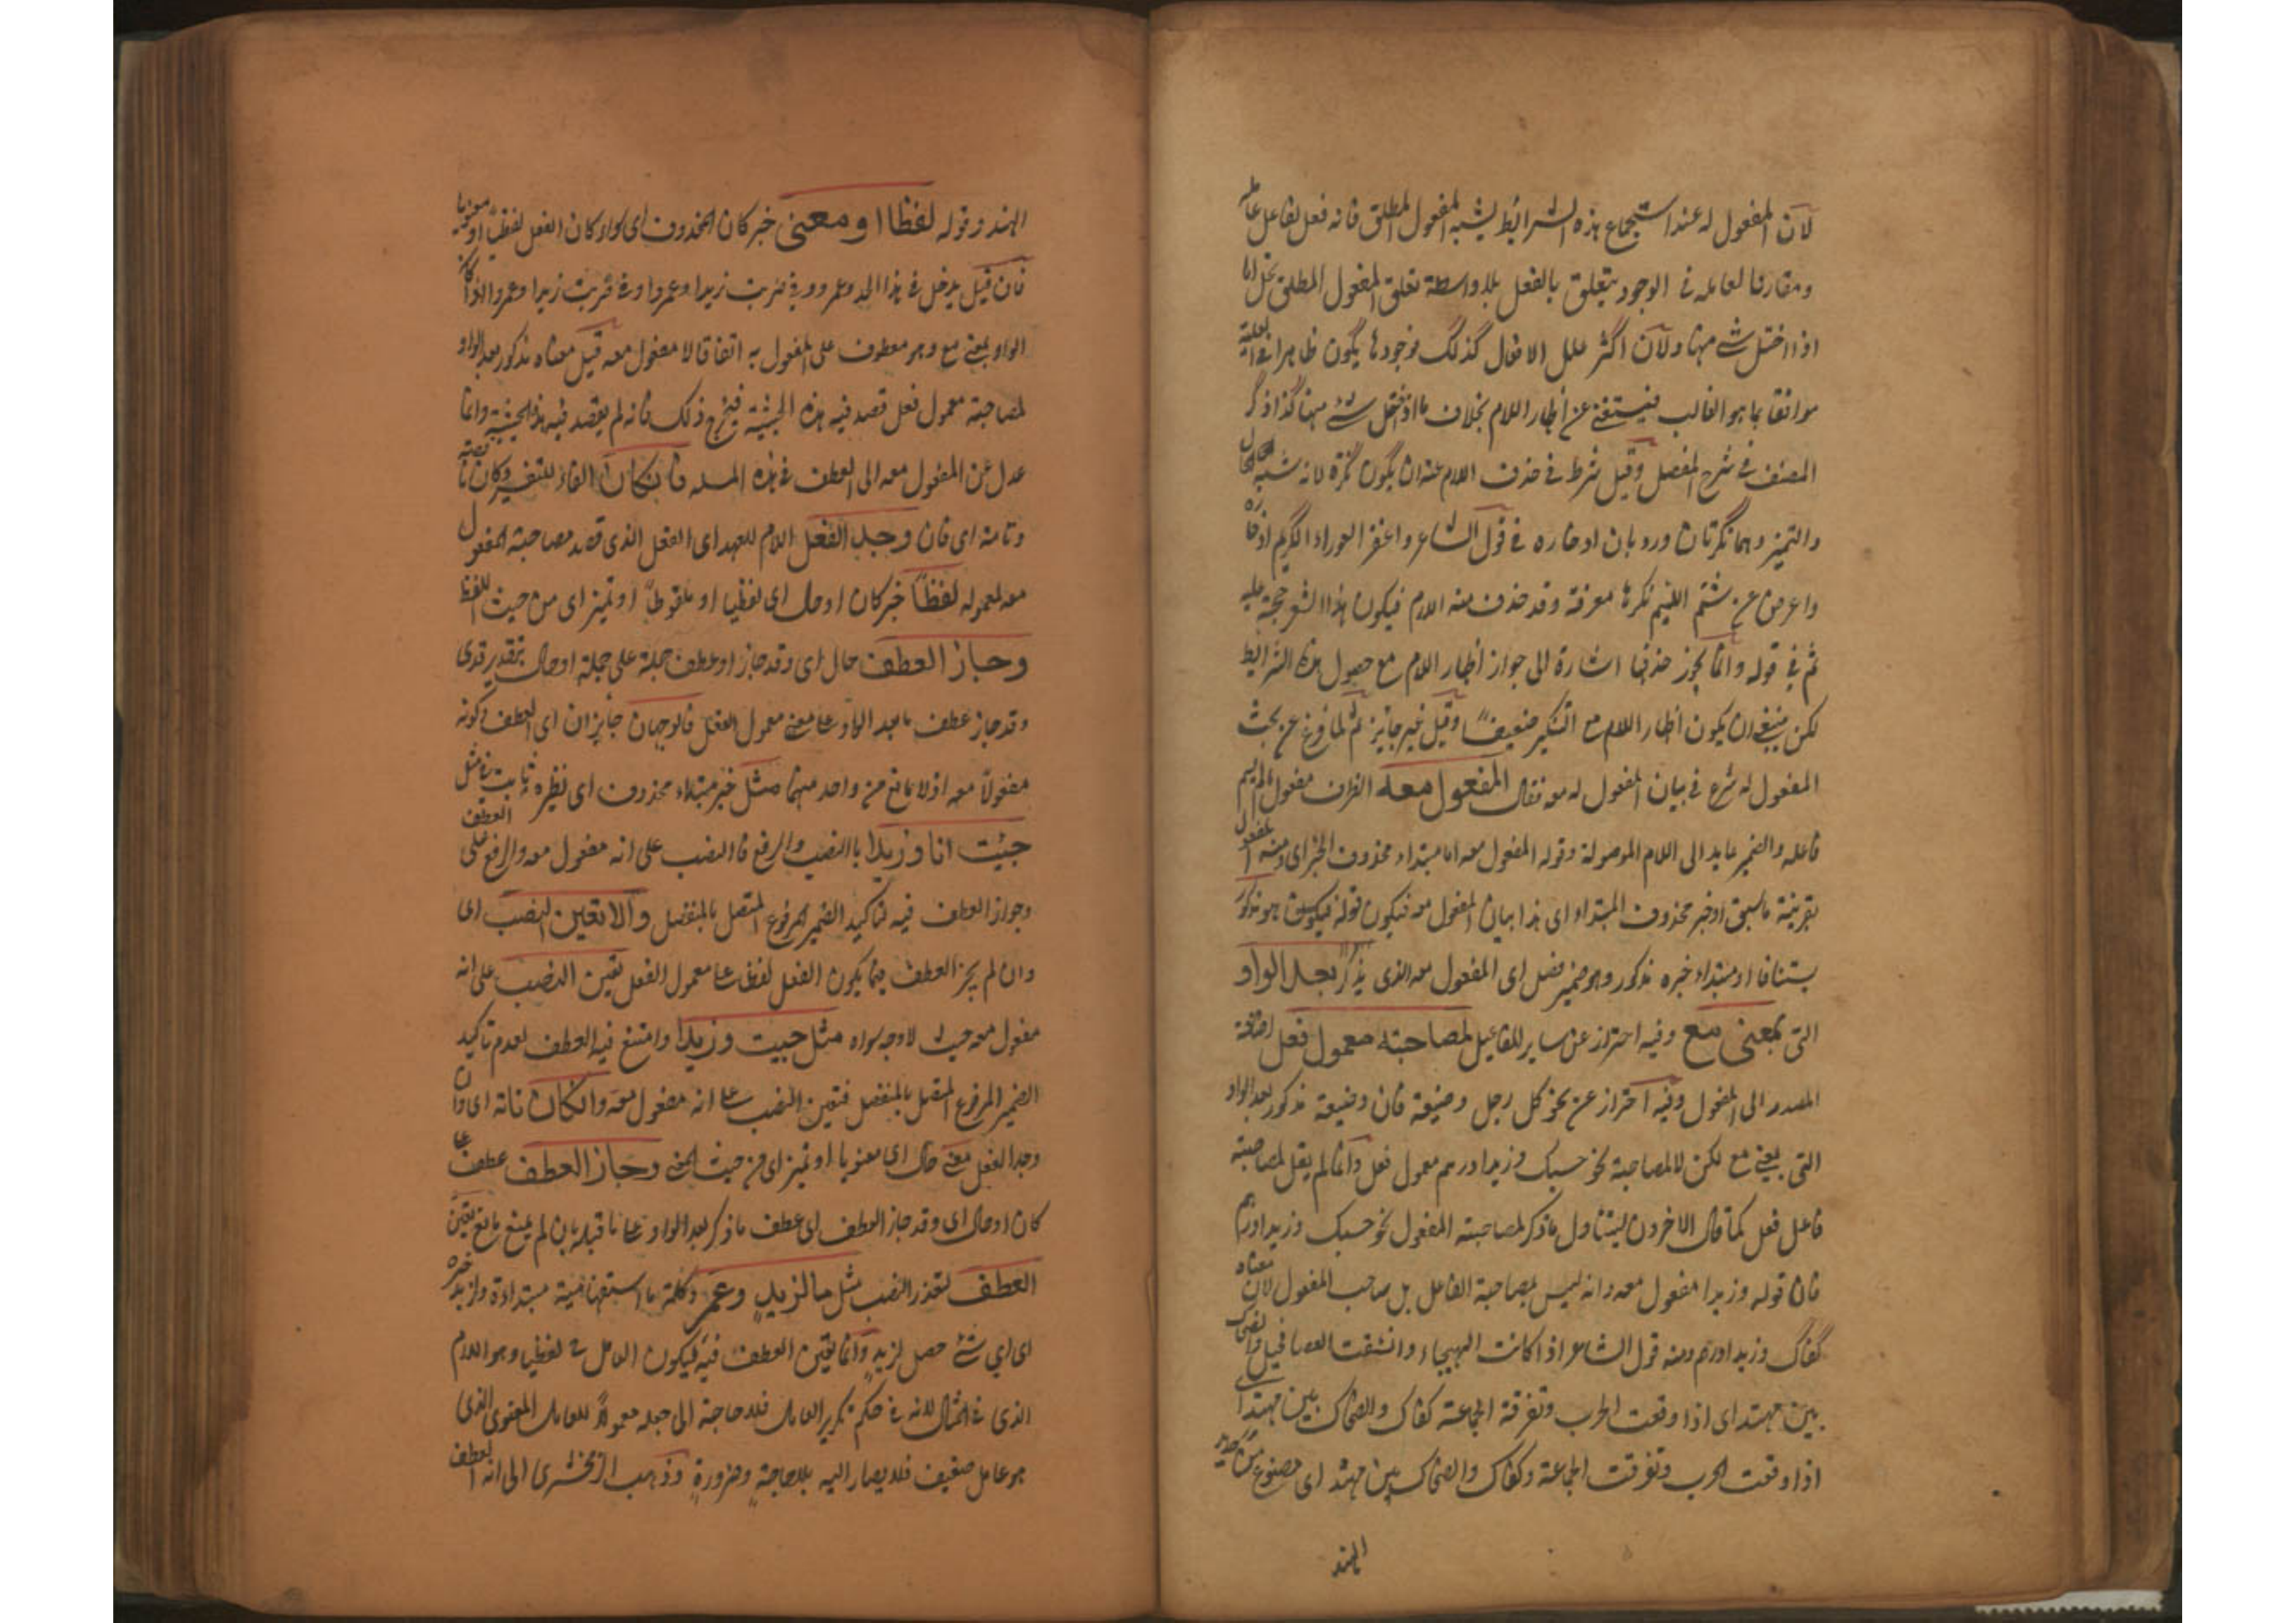 لان المفعول له عند استجماع هذه الشرائط يشبه المفعول المطلق فانه فعل لفاعل عامله
ومقارنا لعامله في الوجود يتعلق بالفعل بلا واسطة تعلق المفعول المطلق بخلاف ما
اذا اختل شئ منها ولان اكثر علل الافعال كذلك فوجودها يكون ظاهرا في العلية
موافقا بما هو الغالب فيستغنى عن اظهار اللام بخلاف ما اذا اختل شئ منها كذا ذكر
المصنف في شرح المفصل وقيل شرط في حذف اللام عنه ان يكون نكرة لانه شبه الحال
والتميز وهما نكرتان ورد بان ادخاره في قول الشاعر واغفر العوراء الكريم ادخاره
واعرض عن شتم اللئيم تكرما معرفة وقد حذف منه اللام فيكون هذا الشعر حجة عليه
ثم في قوله وانما يجوز حذفها اشارة الى جواز اظهار اللام مع حصول هذه الشرائط
لكن ينبغي ان يكون اظهار اللام مع التنكير ضعيفا وقيل غير جايز ثم لما فرغ عن بحث
المفعول له شرع في بيان المفعول معه فقال المفعول معه الظرف مفعول مالم يسم
فاعله والضمير عايد الى اللام الموصولة وقوله المفعول معه اما مبتداء محذوف الخبر اى ومنه المفعول
بقرينة ماسبق او خبر محذوف المبتداء اى هذا بيان المفعول معه فيكون قوله هو مذكور
استينافا او مبتداء خبره مذكور وهو ضمير فصل اى المفعول معه الذى يذكر بعد الواو
التى بمعنى مع وفيه احتراز عن ساير المفاعيل لمصاحبة معمول فعل اضافة
المصدر الى المفعول وفيه احتراز عن نحو كل رجل وضيعة فان وضيعة مذكور بعد الواو
التى بمعنى مع لكن لا لمصاحبة نحو حسبك وزيدا درهم معمول فعل وانما لم يقل لمصاحبة
فاعل فعل كما قال الاخرون ليتناول ما ذكر لمصاحبة المفعول نحو حسبك وزيدا درهم
فان قوله وزيدا مفعول معه وانه ليس بمصاحبة الفاعل بل صاحب المفعول لان معناه
كفاك وزيدا درهم ومنه قول الشاعر اذا كانت الهيجاء وانشقت العصا فحسبك والضحاك
اى اذا وقعت الحرب وتفرقة الجماعة كفاك والضحاك
اذا وقعت الحرب وتفرقت الجماعة وكفاك والضحاك سيف مهند اى مصنوع من حديد
الهند
الهند وقوله لفظا او معنى خبر كان المحذوف اى سواء كان الفعل لفظيا او معنويا
فان قيل يدخل في هذا الحد وعمرو في ضربت زيدا وعمروا
الواو بمعنى مع وهو معطوف على المفعول به اتفاقا لا مفعول معه قيل معناه مذكور بعد الواو
لمصاحبة معمول فعل قصد فيه هذه الحيثية فيخرج ذلك فانه لم يقصد فيه هذه الحيثية وانما
عدل عن المفعول معه الى العطف في هذه المسئلة فان كان الفاء للتفسير وكان ناقصة
وتامة اى فان وجد الفعل اللام للعهد اى الفعل الذى قصد مصاحبة المفعول
معه لمعموله لفظا خبر كان او حال اى لفظيا او ملفوظا او تميز اى من حيث اللفظ
وجاز العطف حال اى وقد جاز او عطف جملة على جملة او حال بتقدير قد اى
وقد جاز عطف ما بعد الواو على معنى معمول الفعل فالوجهان جايزان اى العطف وكونه
مفعولا معه اذ لا مانع من واحد منهما مثل خبر مبتداء محذوف اى نظيره ثابت في مثل
جئت انا وزيدا بالنصب والرفع فالنصب على انه مفعول معه والرفع على العطف
وجواز العطف فيه لتاكيد الضمير المرفوع المتصل بالمنفصل والا تعين النصب اى
وان لم يجز العطف فيما يكون الفعل لفظا على معمول الفعل تعين النصب على انه
مفعول معه حيث لا وجه سواه مثل جيت وزيدا وامتنع فيه العطف لعدم تاكيد
الضمير المرفوع المتصل بالمنفصل فتعين النصب على انه مفعول معه وان كان تامة اى وان
وجد الفعل معنى حال اى معنويا او تميز اى من حيث المعنى وجاز العطف عطف على
كان او حال اى وقد جاز العطف اى عطف ما ذكر بعد الواو على ما قبله بان لم يمنع مانع تعين
العطف لتعذر النصب مثل ما لزيد وعمرو وكلمة ما استفهامية مبتداءة ولزيد خبره
اى اى شئ حصل لزيد وانما تعين العطف فيه ليكون العامل لفظيا وهو اللام
الذى في المثال لانه في حكم تكرير العامل فلا حاجة الى جعله معمولا للعامل المعنوى الذى
هو عامل ضعيف فلا يصار اليه بلا حاجة وضرورة وذهب الزمخشرى الى انه العطف